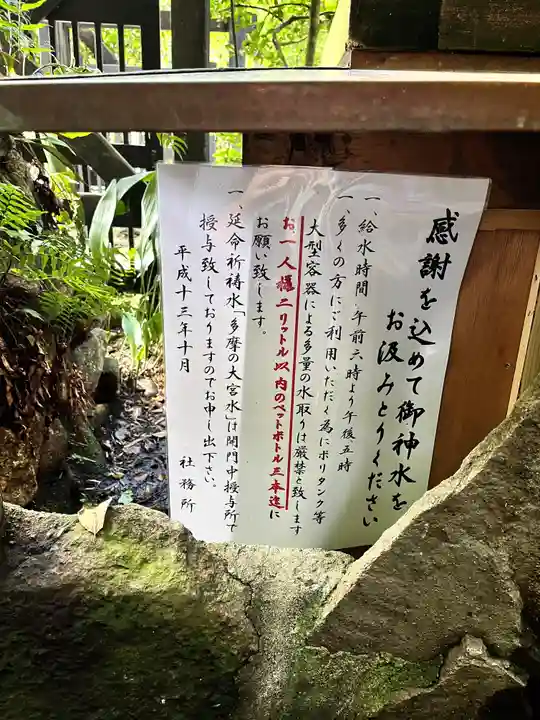 感謝を込めて御神水を
お汲みとりください
一、給水時間 午前六時より午後五時
一、多くの方にご利用いただく為にポリタンク等
大型容器による多量の水取りは厳禁と致します
お一人様二リットル以内のペットボトル三本迄に
お願い致します。
一、延命祈祷水「多摩の大宮水」は開門中授与所で
授与致しておりますのでお申し出下さい。
平成十三年十月
社務所